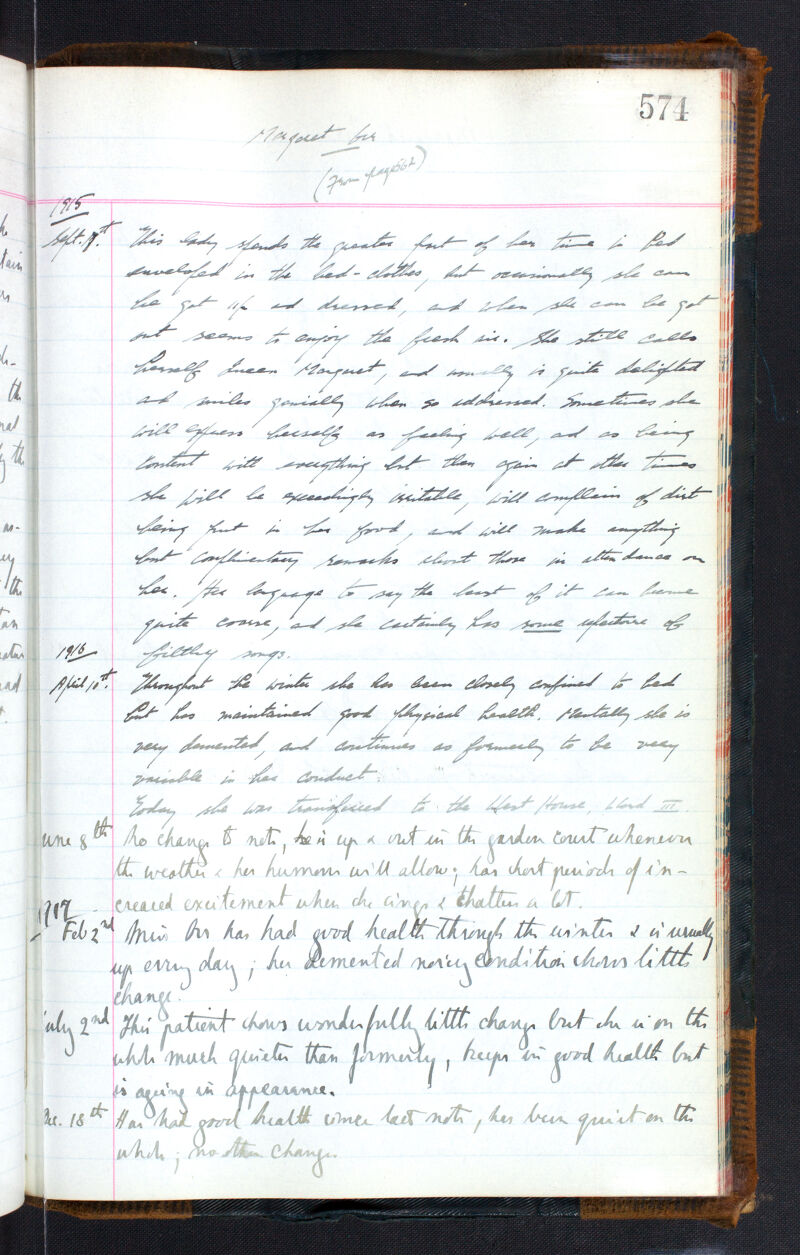 574
Margaret Orr
(From page 562)
1915
Sept. 9th. This lady spends the greater part of her time in bed
enveloped in the bed-clothes, but occasionally she can
be got up and dressed, and when she can be got
out seems to enjoy the fresh air. She still calls
herself Queen Margaret, and usually is quite delighted
and smiles genially when so addressed. Sometimes she
will express herself as feeling well, and as being
content with everything but then again at other times
she will be exceedingly irritable, will complain of dirt
being put in her food, and will make anything
but complimentary remarks about those in attendance on
her. Her language to say the least of it can become
quite coarse, and she certainly has some repertoire of
filthy songs.
1916
April 10th. Throughout the winter she has been closely confined to bed
but has maintained good physical health. Mentally she is
very demented, and continues as formerly to be very
variable in her conduct.
Today she was transferred to the West House, Ward III.
une 8th No change to note, she is up & out in the garden court whenever
the weather & her humours will allow; has short periods of in-
creased excitement when she sings & chatters a lot.
1917
Feb 2nd Miss Orr has had good health through the winter & is usually
up every day; her demented noisy condition shows little
change.
July 2nd This patient shows wonderfully little change but she is on the
whole much quieter than formerly, keeps in good health but
is ageing in appearance.
Dec. 18th Has had good health since last note, has been quiet on the
whole; no other change.